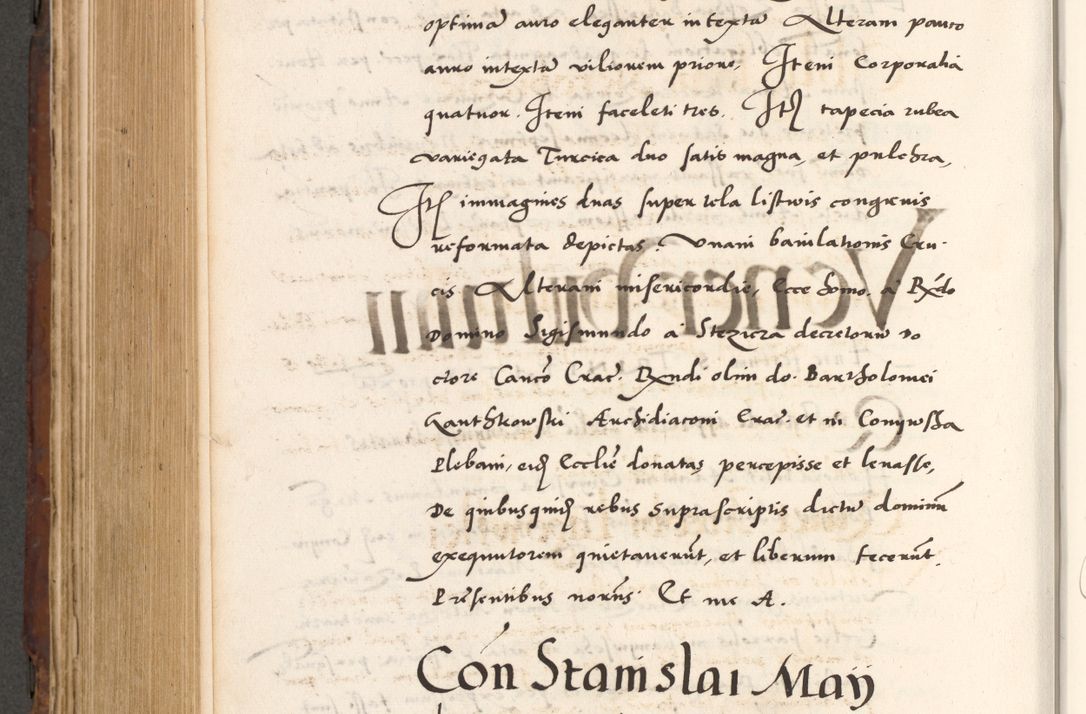 optima auro eleganter in texta Alteram pauco
auro intexta viliorem priore, Item Corporalia
quatuor. Item faceleti tres. Itꝫ tapecia rubea
variegata Turcica duo satis magna, et pulchra,
Itꝫ immagines duas super tela listwis congruis
reformata depictas. Unam baiulationis Cru-
cis Alteram misericordie, Ecce homo. a Rndo
Domino Sigismundo a Stezicza decretoru do
ctore Canco Crac. Rndi olim do. Bartholomei
Gantkowski Archidiaconi Crac. et in Conywsha
Plebani, eidꝫ Ecclie donatas percepisse et levasse,
De quibusquidꝫ rebus suprascriptis dictu dominu
exequutorem quietaverut, et liberum fecerut.
Presentibus nōrns. Et me A.
Con Stanislai Maij